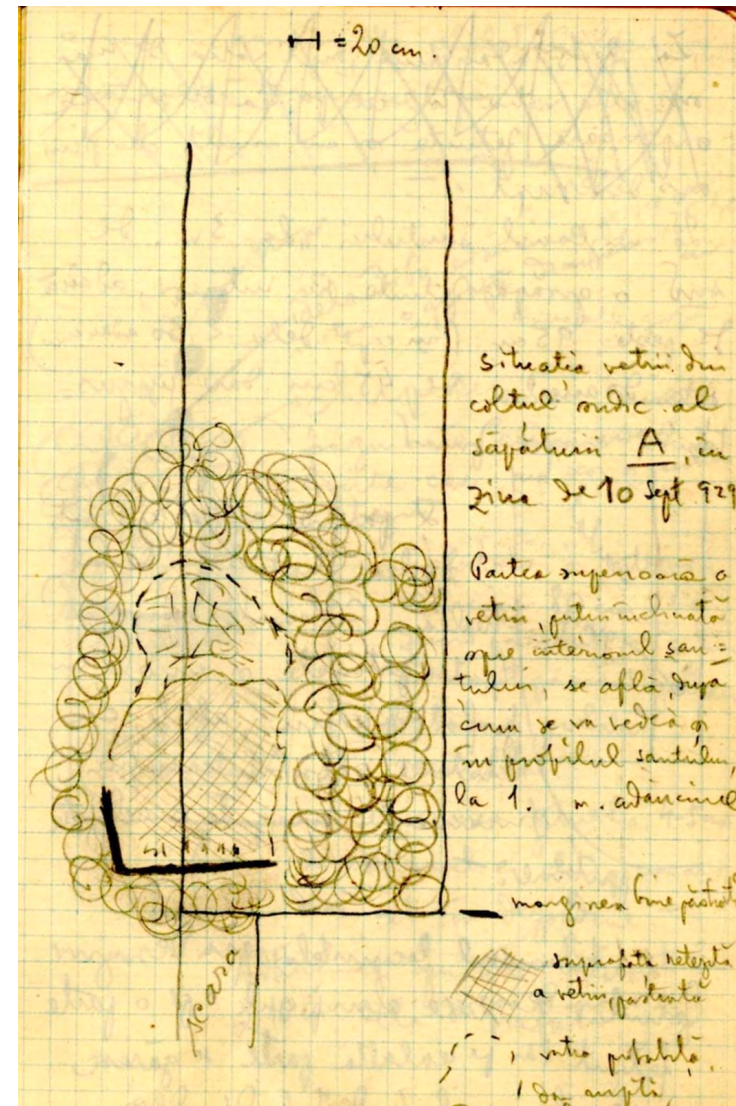 = 20 cm.
situația vetrii din
colțul sudic al
săpăturii A, în
ziua de 10 Sept 929
Partea superioară a
vetrii, puțin inclinată
spre interiorul șan=
țului, se află, după
cum se va vedea și
în profilul șanțului,
la 1. m. adâncime
marginea bine păstrată
suprafața netezită
a vetrii, păstrată
scara
vatra probabilă,